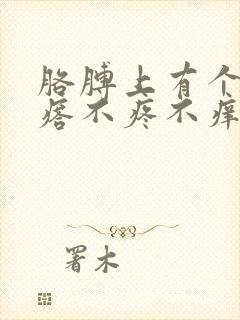 胳膊上有个
瘩不疼不痒
署木